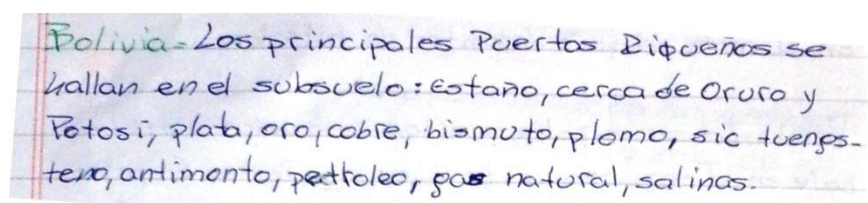 Bolivia = Los principales Puertos Riqueños se
hallan en el subsuelo: Estaño, cerca de Oruro y
Potosí, plata, oro, cobre, bismuto, plomo, sic tuengs-
teno, antimonto, pettoleo, gas natural, salinas.